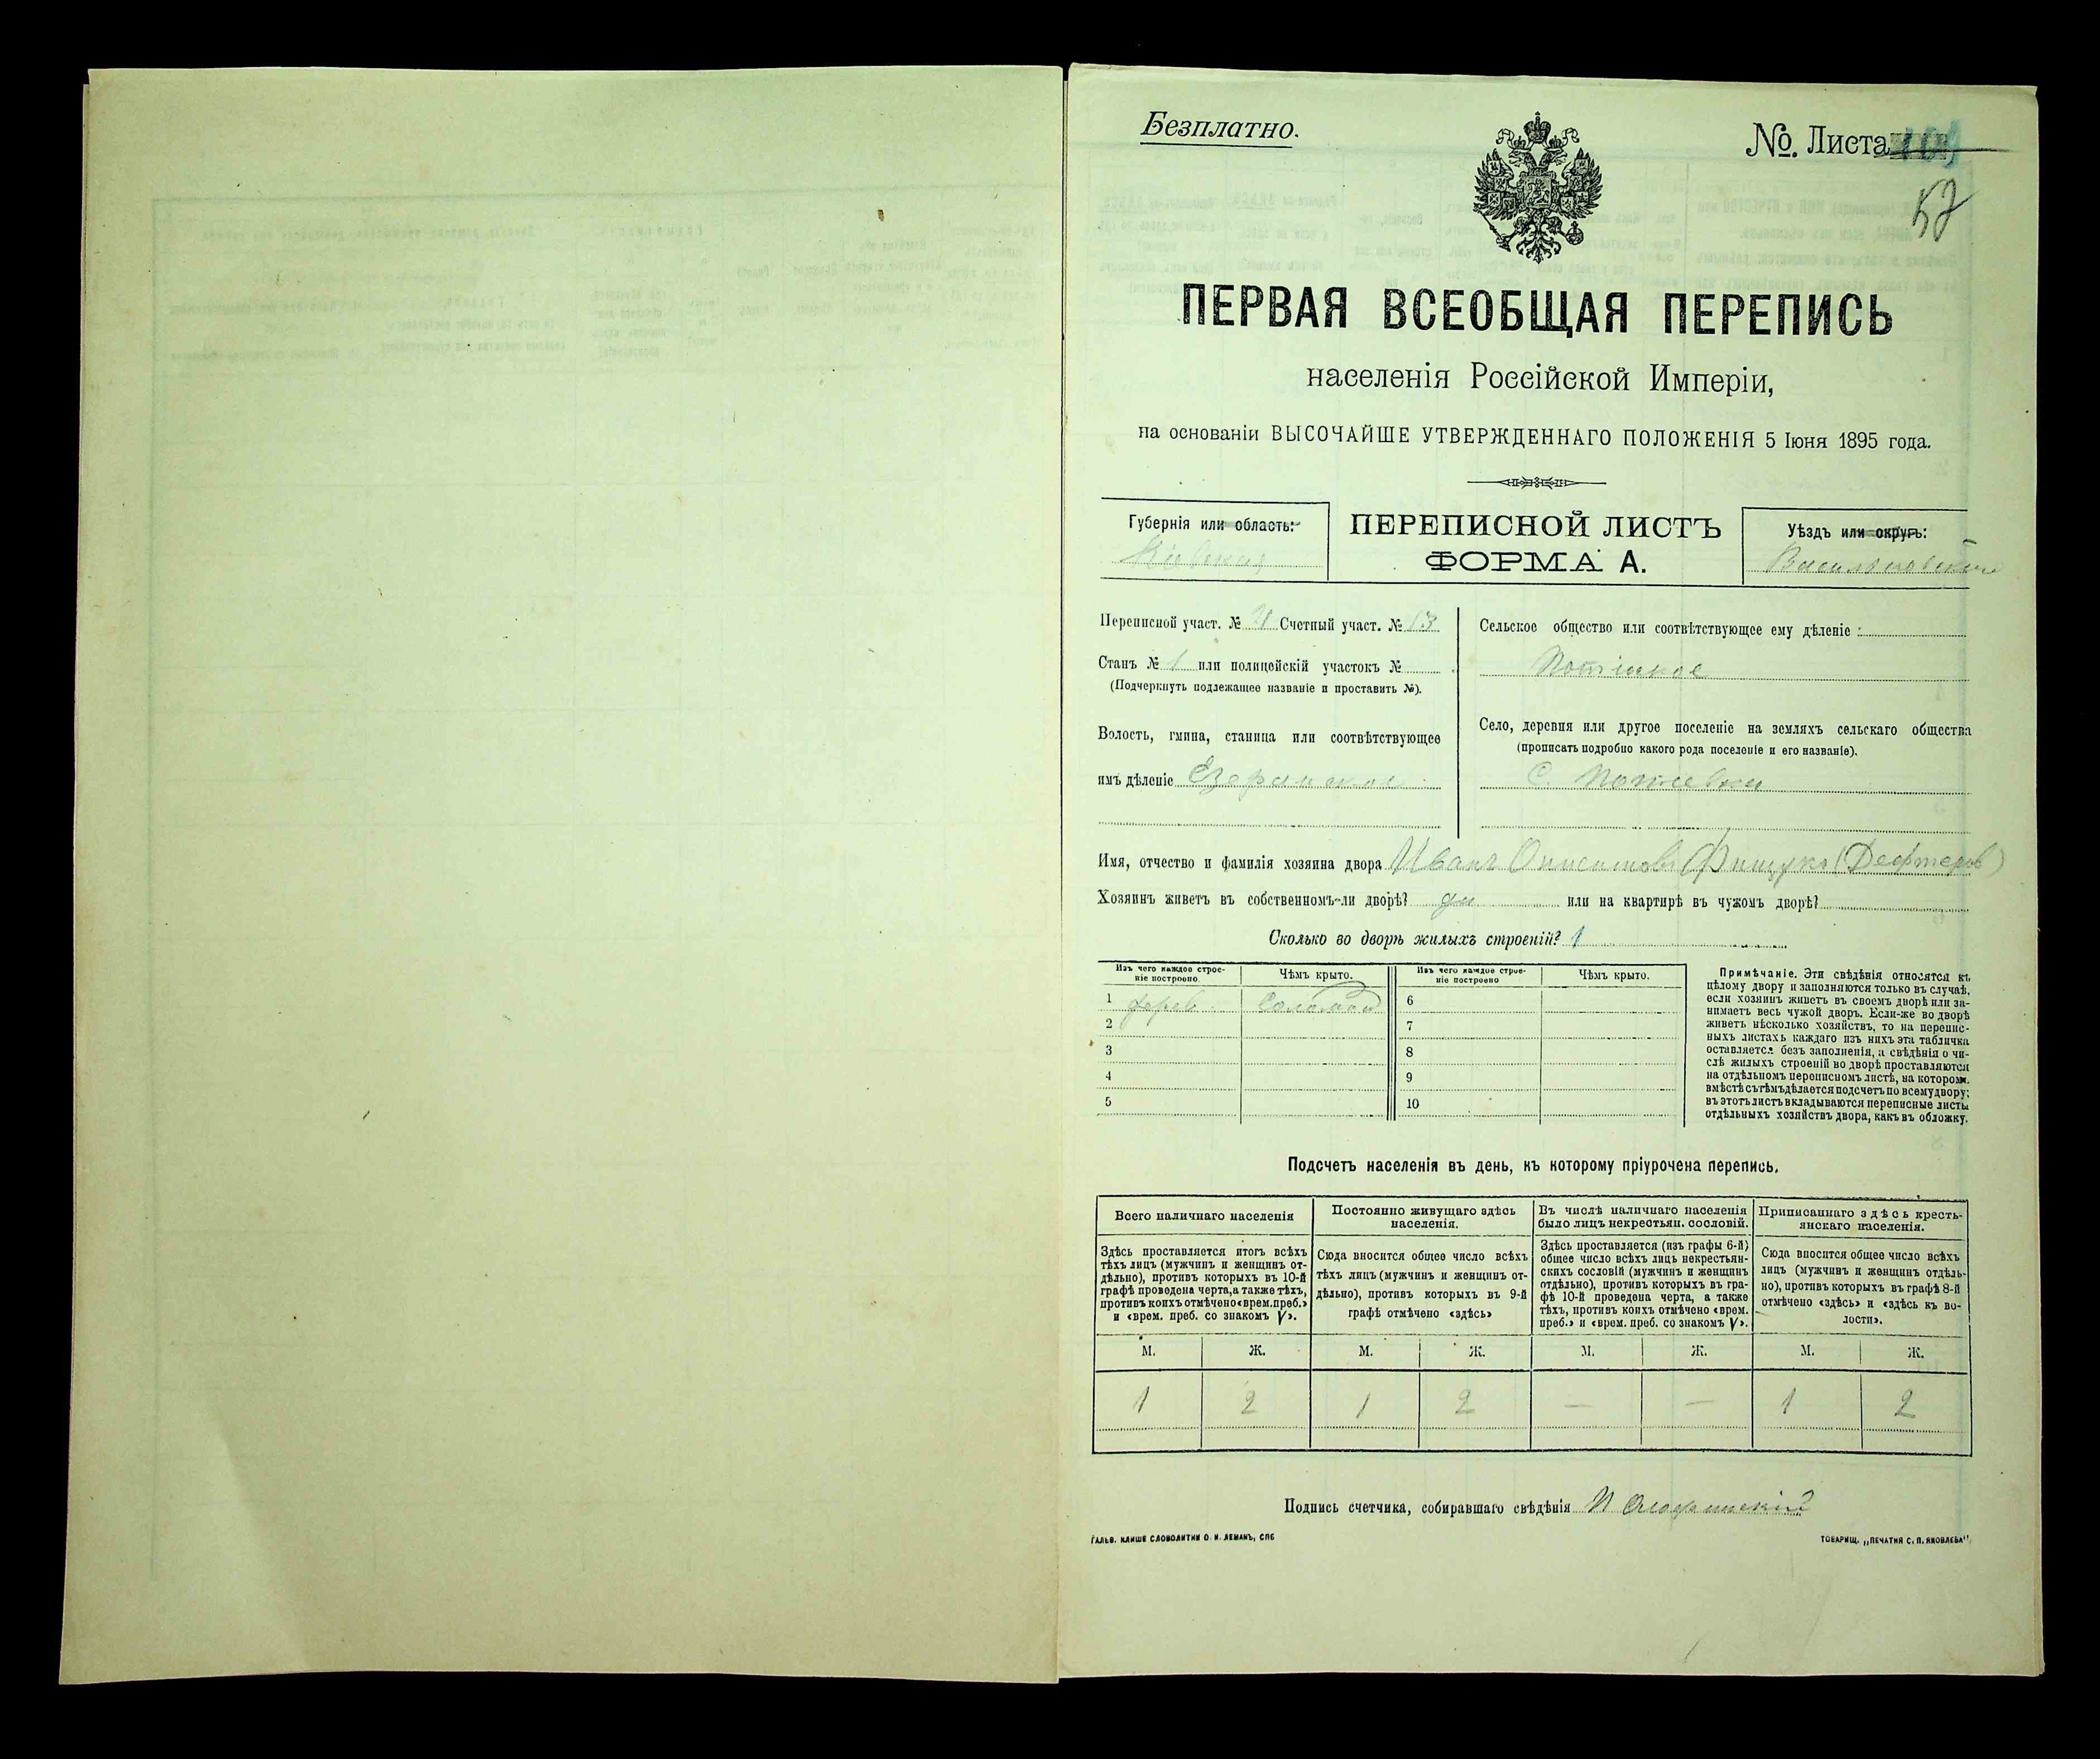 Безплатно.
№. Листа
57
ПЕРВАЯ ВСЕОБЩАЯ ПЕРЕПИСЬ
населенія Россійской Имперіи,
на основаніи ВЫСОЧАЙШЕ УТВЕРЖДЕННАГО ПОЛОЖЕНІЯ 5 Іюня 1895 года.
Губернія или область:
Кіевская
ПЕРЕПИСНОЙ ЛИСТЪ
ФОРМА А.
Уѣздъ или округъ:
Васильковскій
Переписной участ. № Счетный участ. № 13
Станъ № 1 или полицейскій участокъ №
(Подчеркнуть подлежащее названіе и проставить №).
Волость, гмина, станица или соотвѣтствующее
имъ дѣленіе Езерянская
Сельское общество или соотвѣтствующее ему дѣленіе:
Потіиское
Село, деревня или другое поселеніе на земляхъ сельскаго общества
(прописать подробно какого рода поселеніе и его названіе).
С. Потіевка
Имя, отчество и фамилія хозяина двора Иванъ Онисимовъ Фищукъ (Дефтеровъ)
Хозяинъ живетъ въ собственномъ-ли дворѣ? да или на квартирѣ въ чужомъ дворѣ?
Сколько во дворѣ жилыхъ строеній? 1
Изъ чего каждое строе-
ніе построено.
Чѣмъ крыто.
Изъ чего каждое строе-
ніе построено
Чѣмъ крыто.
1 дерев. Соломой 6
2 7
3 8
4 9
5 10
Примѣчаніе. Эти свѣдѣнія относятся къ
цѣлому двору и заполняются только въ случаѣ,
если хозяинъ живетъ въ своемъ дворѣ или за-
нимаетъ весь чужой дворъ. Если-же во дворѣ
живетъ нѣсколько хозяйствъ, то на перепис-
ныхъ листахъ каждаго изъ нихъ эта табличка
оставляется безъ заполненія, а свѣдѣнія о чи-
слѣ жилыхъ строеній во дворѣ проставляются
на отдѣльномъ переписномъ листѣ, на которомъ
вмѣстѣ съ тѣмъ дѣлается подсчетъ по всему двору;
въ этотъ листъ вкладываются переписные листы
отдѣльныхъ хозяйствъ двора, какъ въ обложку.
Подсчетъ населенія въ день, къ которому пріурочена перепись.
Всего наличнаго населенія
Постоянно живущаго здѣсь
населенія.
Въ числѣ наличнаго населенія
было лицъ некрестьян. сословій.
Приписаннаго здѣсь кресть-
янскаго населенія.
Здѣсь проставляется итогъ всѣхъ
тѣхъ лицъ (мужчинъ и женщинъ от-
дѣльно), противъ которыхъ въ 10-й
графѣ проведена черта, а также тѣхъ,
противъ коихъ отмѣчено «врем. преб.»
и «врем. преб. со знакомъ V».
Сюда вносится общее число всѣхъ
тѣхъ лицъ (мужчинъ и женщинъ от-
дѣльно), противъ которыхъ въ 9-й
графѣ отмѣчено «здѣсь»
Здѣсь проставляется (изъ графы 6-й)
общее число всѣхъ лицъ некрестьян-
скихъ сословій (мужчинъ и женщинъ
отдѣльно), противъ которыхъ въ гра-
фѣ 10-й проведена черта, а также
тѣхъ, противъ коихъ отмѣчено «врем.
преб.» и «врем. преб. со знакомъ V».
Сюда вносится общее число всѣхъ
лицъ (мужчинъ и женщинъ отдѣль-
но), противъ которыхъ въ графѣ 8-й
отмѣчено «здѣсь» и «здѣсь къ во-
лости».
М. Ж. М. Ж. М. Ж. М. Ж.
1 2 1 2 — — 1 2
Подпись счетчика, собиравшаго свѣдѣнія
ГАЛЬВ. КЛИШЕ СЛОВОЛИТНИ О. И. ЛЕМАНЪ, СПБ
ТОВАРИЩ. „ПЕЧАТНЯ С. П. ЯКОВЛЕВА"